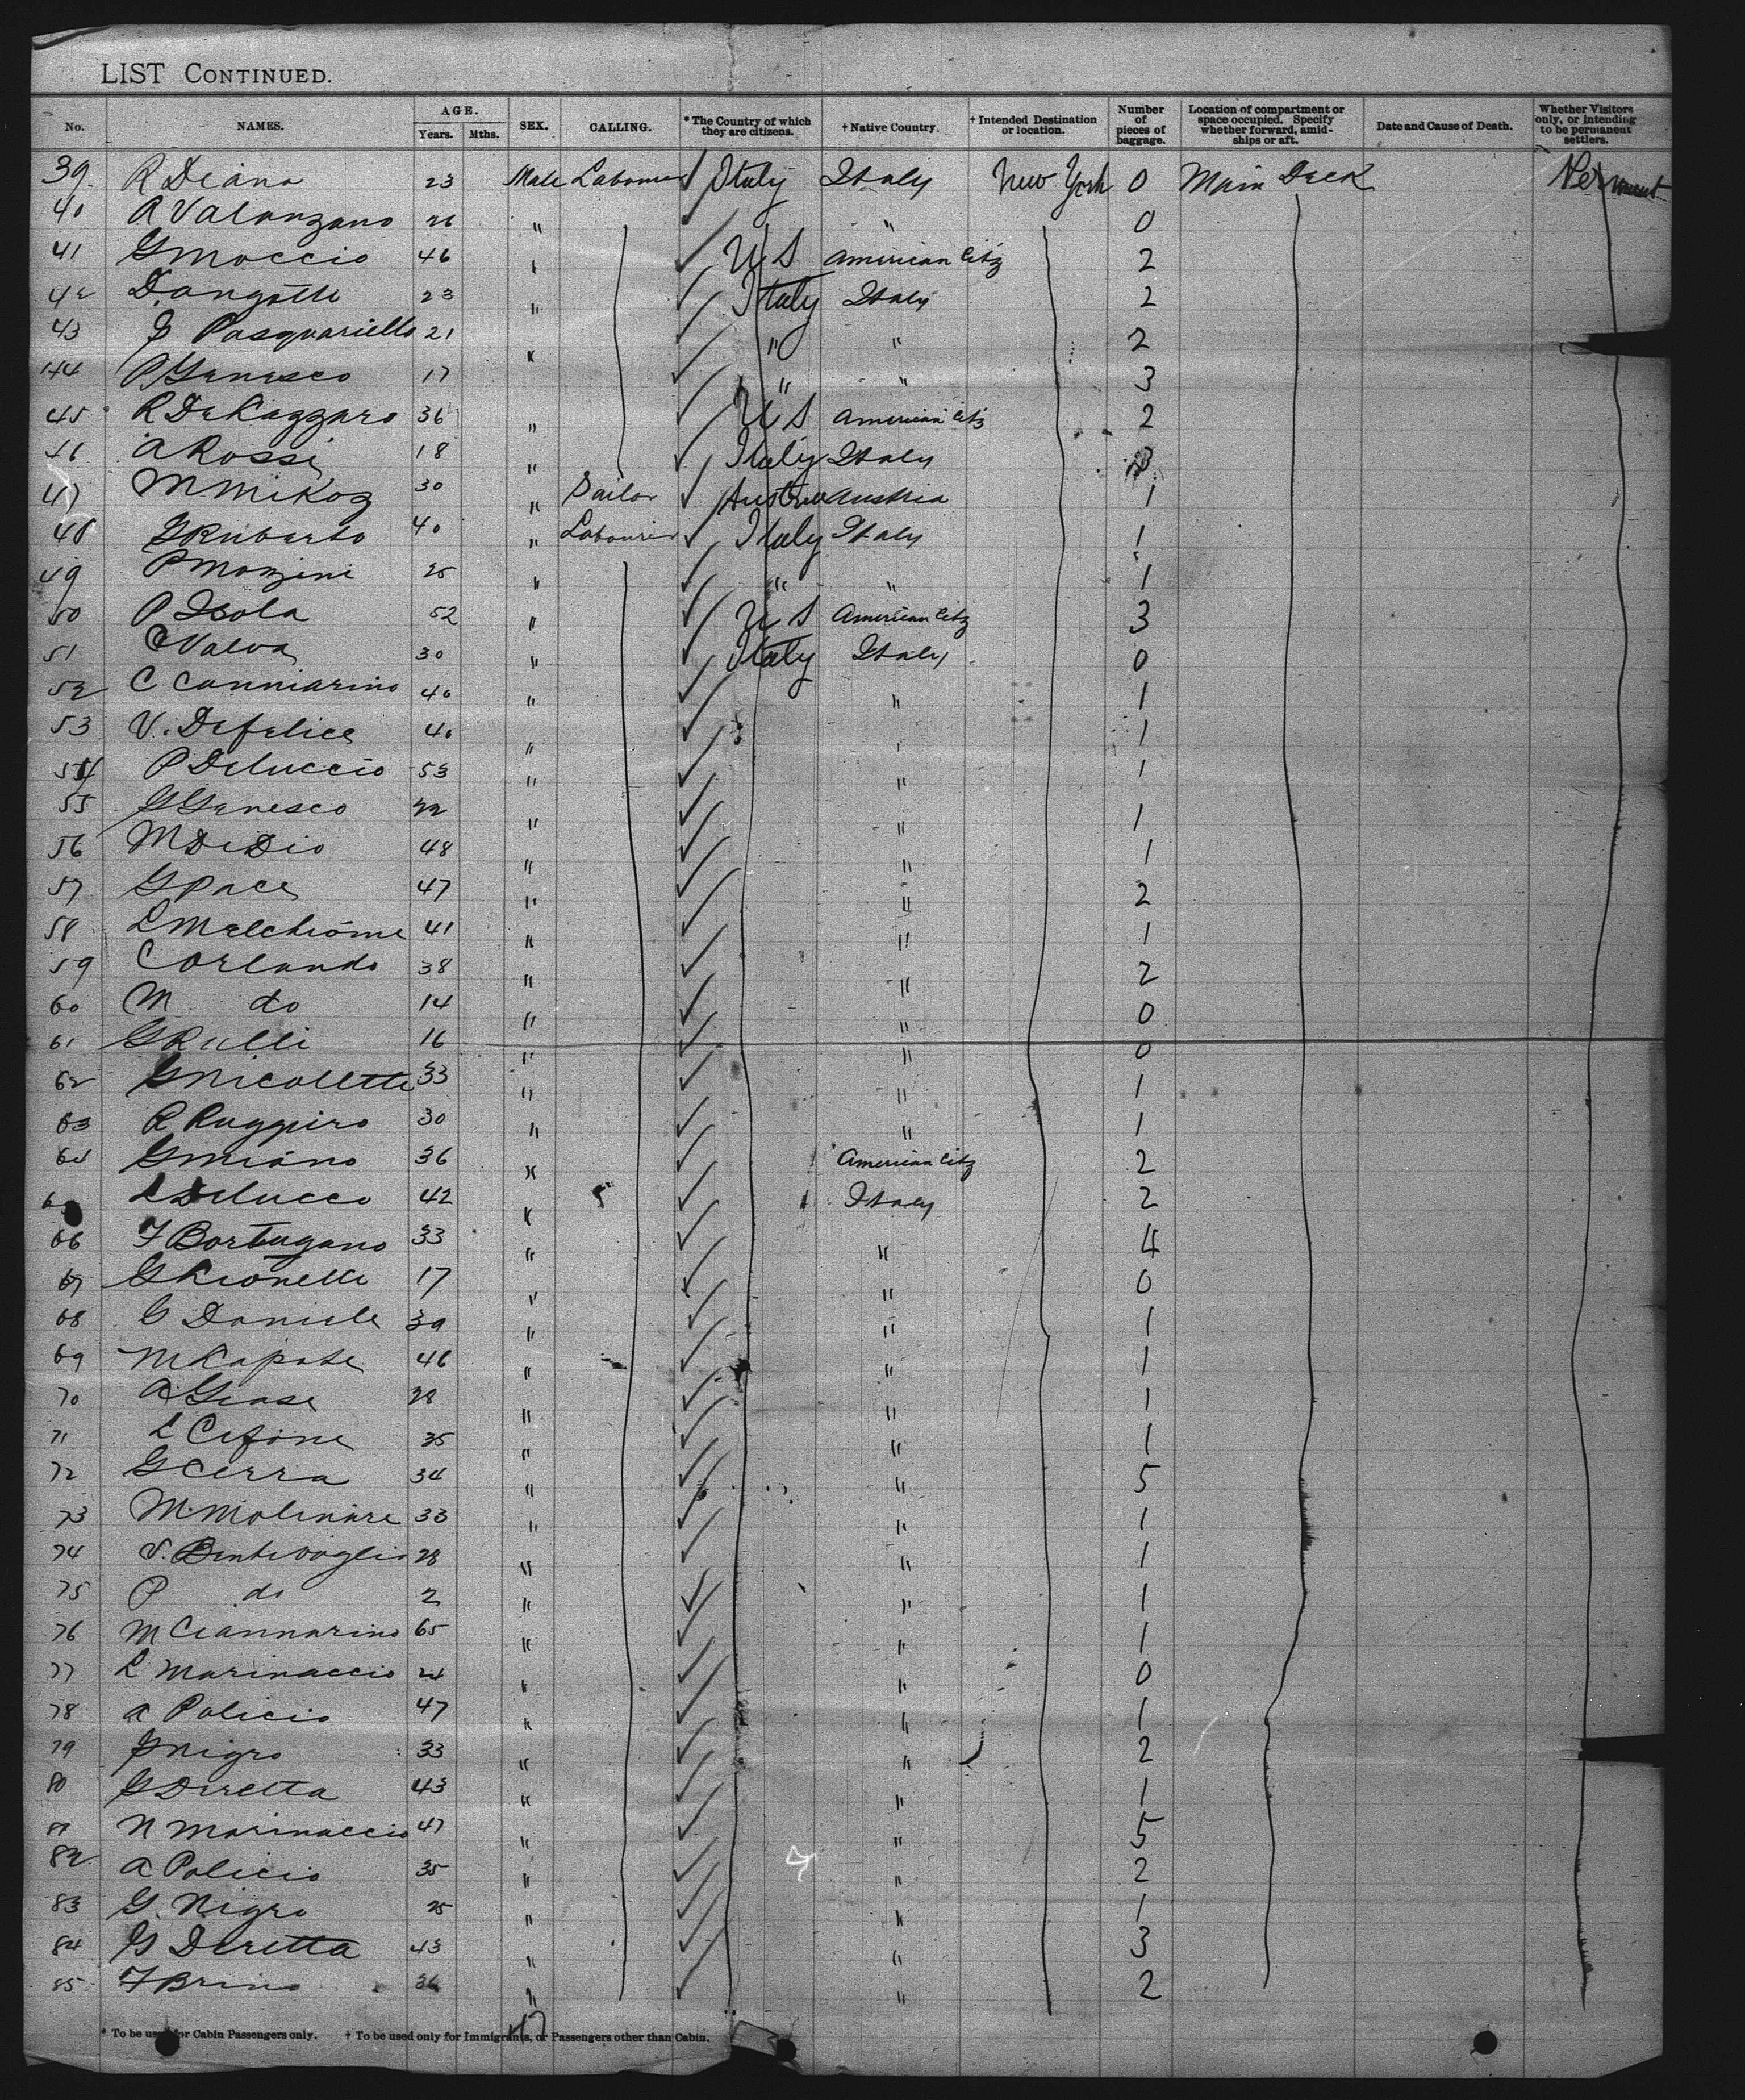 LIST CONTINUED.
No. NAMES. AGE. Years. Mths. SEX. CALLING. * The Country of which they are citizens. † Native Country. † Intended Destination or location. Number of pieces of baggage. Location of compartment or space occupied. Specify whether forward, amidships or aft. Date and Cause of Death. Whether Visitors only, or intending to be permanent settlers.
39 R Diana 23 Male Labourer ✓ Italy Italy New York 0 Main Deck
40 A Valanzano 26 " ✓ " 0
41 G Moccio 46 " ✓ U S American Citz 2
42 D. Angotti 23 " ✓ Italy Italy 2
43 G Pasquariello 21 " ✓ " " 2
44 P Genesco 17 ✓ " " 3
45 R 36 " ✓ U S American Citz 2
46 A Rossi 18 " ✓ Italy Italy
47 M Mikoz 30 " Sailor ✓ Austria Austria 1
48 G Ruberto 40 " Labourer ✓ Italy Italy 1
49 P Monzini 25 " ✓ " " 1
50 P Isola 52 " ✓ U S American Citz 3
51 C Valva 30 " ✓ Italy Italy 0
52 C Canniarino 40 " ✓ " 1
53 V. Defelice 40 " ✓ 1
54 P Deluccio 53 " ✓ " 1
55 G Genesco 22 " ✓ " 1
56 M DeDio 48 " ✓ " 1
57 G Pace 47 " ✓ " 2
58 L Melchiome 41 " ✓ " 1
59 C Orlando 38 " ✓ " 2
60 M do 14 " ✓ " 0
61 G Rulli 16 " ✓ " 0
62 G Nicoletti 33 " ✓ " 1
63 R Ruggiro 30 " ✓ " 1
64 G Miano 36 " ✓ American Citz 2
L Delucco 42 " ✓ Italy 2
66 F Bortugano 33 " ✓ " 4
67 G 17 " ✓ " 0
68 G Daniele 39 " ✓ " 1
69 M Kapate 46 " ✓ " 1
70 A 28 " ✓ " 1
71 L Cifone 35 " ✓ " 1
72 G Cerra 34 " ✓ " 5
73 M. Molinare 33 " ✓ " 1
74 V. Bentivoglio 28 " ✓ " 1
75 P do 2 " ✓ " 1
76 M Ciannarino 65 " ✓ " 1
77 L Marinaccio 24 " ✓ " 0
78 A Policio 47 " ✓ " 1
79 G Nigro 33 " ✓ " 2
80 G Diretta 43 " ✓ " 1
81 N Marinaccio 47 " ✓ " 5
82 A Policio 35 " ✓ " 2
83 G. Nigro 25 " ✓ " 1
84 G Diretta 43 " ✓ " 3
85 F 36 " ✓ " 2
* To be used for Cabin Passengers only. † To be used only for Immigrants, or Passengers other than Cabin.
47